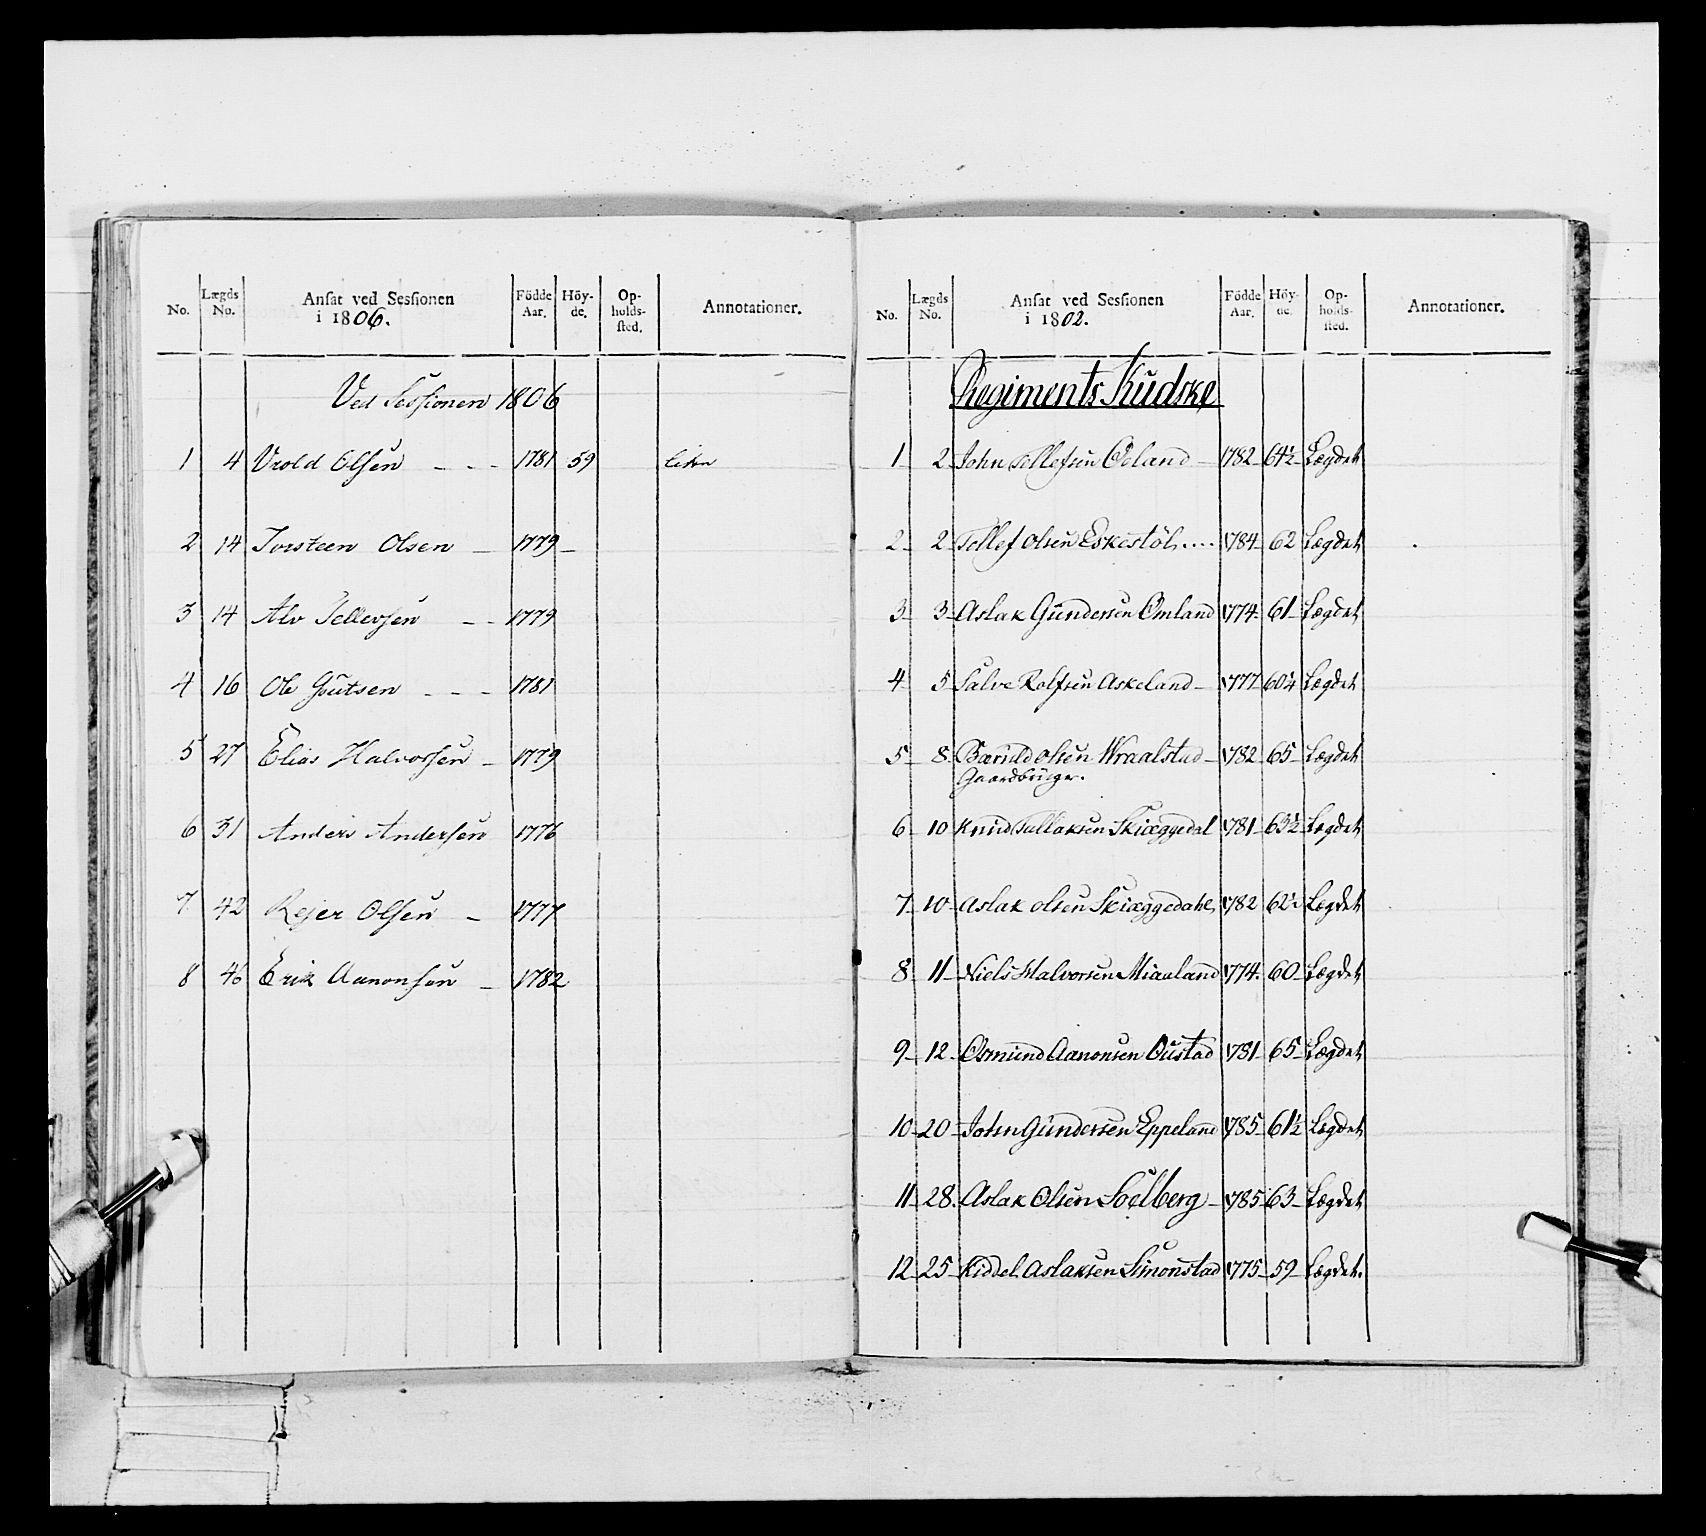 No. | Lægds No. | Ansat ved Sessionen i 1806. | Födde Aar. | Höy-de. | Op-holds-sted. | Annotationer.
Ved Sessionen 1806
1 | 4 | Vrold Olsen - - - | 1781 | 59
2 | 14 | Torsteen Olsen - | 1779 -
3 | 14 | Alv Tellevsen - - | 1779
4 | 16 | Ole Goutsen - - - | 1781
5 | 27 | Elias Halvorsen - | 1779
6 | 31 | Anders Andersen | 1776
7 | 42 | Rejer Olsen - | 1777
8 | 46 | Erik Aanonsen - | 1782
No. | Lægds No. | Ansat ved Sessionen i 1802. | Födde Aar. | Höy-de. | Op-holds-sted. | Annotationer.
Regiments Kudske
1 | 2 | John Tollefsen Öeland | 1782 | 64½ | Lægdet
2 | 2 | Tollef Olsen Eskestöl .... | 1784 | 62 | Lægdet
3 | 3 | Aslak Gundersen Omland | 1774 | 61 | Lægdet
4 | 5 | Salve Rolfsen Askeland | 1777 | 60¼ | Lægdet
5 | 8 | Olsen Wraalstad | 1782 | 65 | Lægdet
Gaardbruger.
6 | 10 | Knud Tallaksen Skiæggedal | 1781 | 63½ | Lægdet
7 | 10 | Aslak Olsen Skiæggedahl | 1782 | 62½ | Lægdet
8 | 11 | Niels Halvorsen Miaaland | 1774 | 60 | Lægdet
9 | 12 | Osmund Aanonsen Oustad | 1781 | 65 | Lægdet
10 | 20 | John Gundersen Eppeland | 1785 | 61½ | Lægdet
11 | 28 | Aslak Olsen Solberg | 1785 | 63 | Lægdet
12 | 25 | Kiddel Aslaksen Simonstad | 1775 | 59 | Lægdet.